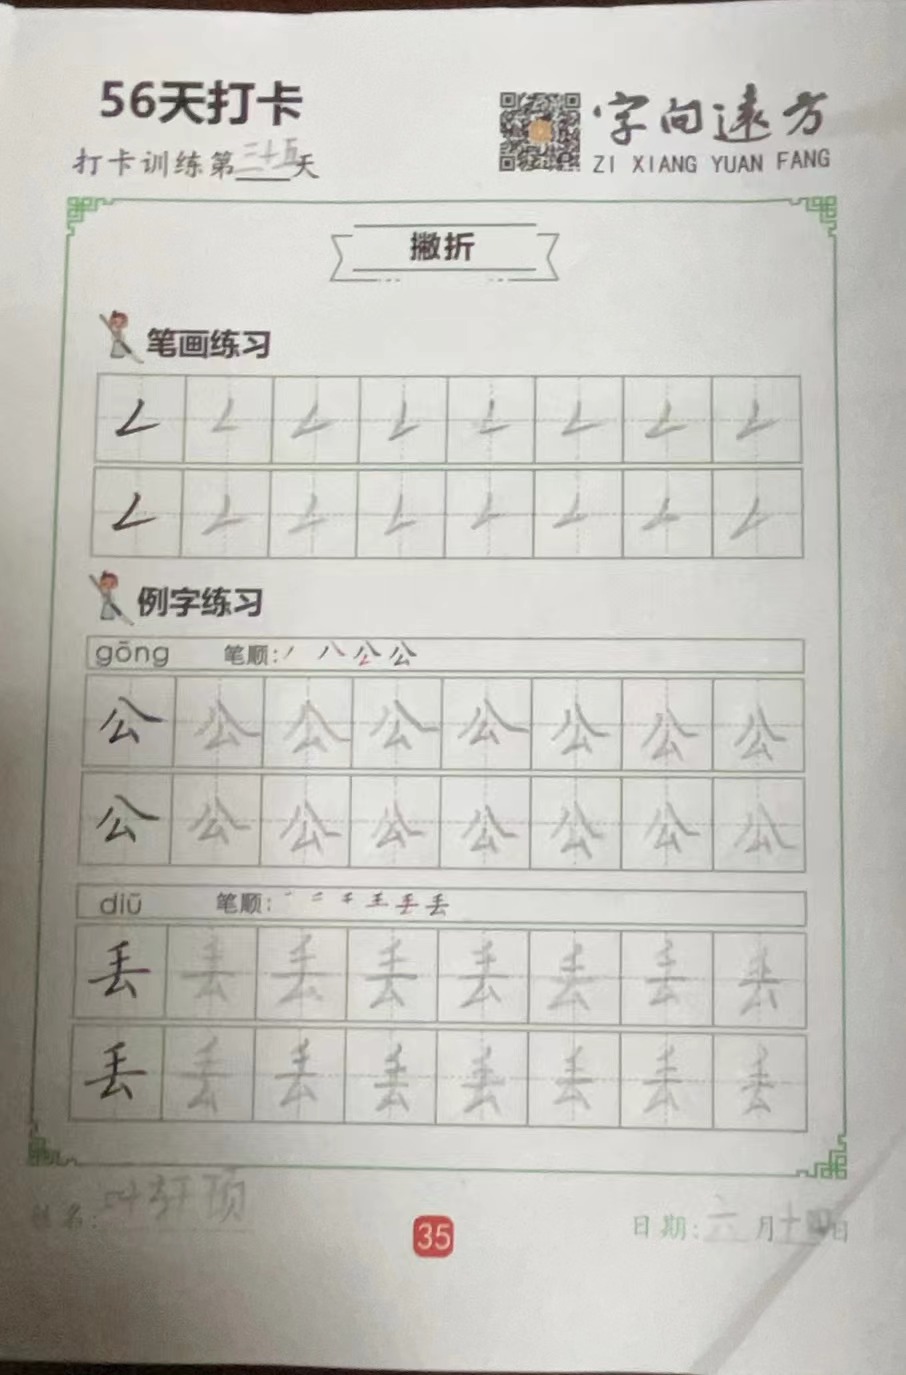 56天打卡
字向远方
打卡训练第三十五天
ZI XIANG YUAN FANG
撇折
笔画练习
例字练习
gōng 笔顺: 丿 八 公 公
公 公 公 公 公 公 公 公
公 公 公 公 公 公 公 公
diū 笔顺: 丢
丢 丢 丢 丢 丢 丢 丢 丢
丢 丢 丢 丢 丢 丢 丢 丢
姓名: 叶轩顶
日期: 六月十四日
35